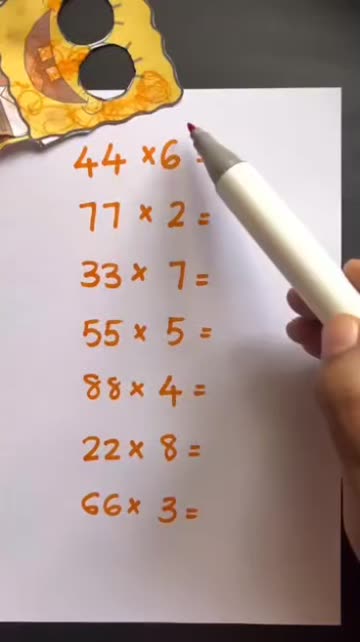 44 × 6 =
77 × 2 =
33 × 7 =
55 × 5 =
88 × 4 =
22 × 8 =
66 × 3 =